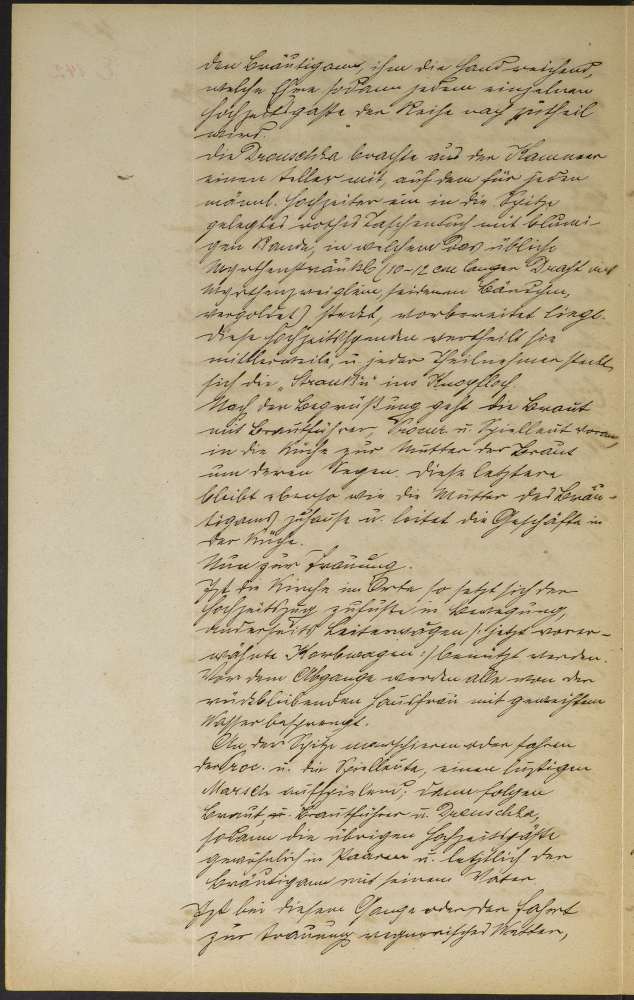 den Bräutigam, ihm die Hand reichend,
welche Ehre sodann jedem einzelnen
Hochzeitsgaste der Reihe nach zutheil
wird.
Die Drouschka brachte aus der Kammer
einen Teller mit, auf dem für jeden
männl. Hochzeiter ein in die Spitze
gelegtes rothes Taschentuch mit blumi-
gen Rande, in welchem das übliche
Myrthensträußl (10-12 cm langer Draht mit
Myrthenzweiglein, seidenen Bändchen,
vergoldet) steckt, vorbereitet liegt.
Diese Hochzeitsspenden vertheilt sie
mittlerweile, u. jeder Theilnehmer steckt
sich die "Strauß'n" ins Knopfloch.
Nach der Begrüßung geht die Braut
mit Brautführer, Procur. u. Spielleut voran,
in die Küche zur Mutter der Braut
um deren Segen. Diese letztere
bleibt ebenso wie die Mutter des Bräu-
tigams zuhause u. leitet die Geschäfte in
der Küche.
Nun zur Trauung.
Ist die Kirche im Orte so setzt sich der
Hochzeitszug zufuße in Bewegung,
anderseits Leiterwägen /: jetzt vorer-
wähnte Korbwagen :/ benützt werden.
Vor dem Abgange werden alle von der
rückbleibenden Hausfrau mit geweihtem
Wasser besprengt.
An der Spitze marschieren oder fahren
der Proc. u. die Spielleute, einen lustigen
Marsch aufspielend; dann folgen
Braut, Brautführer u. Drouschka,
sodann die übrigen Hochzeitsgäste
gewöhnlich in Paaren u. letztlich der
Bräutigam mit seinem Vater.
Ist bei diesem Gange oder der Fahrt
zur Trauung regnerisches Wetter,